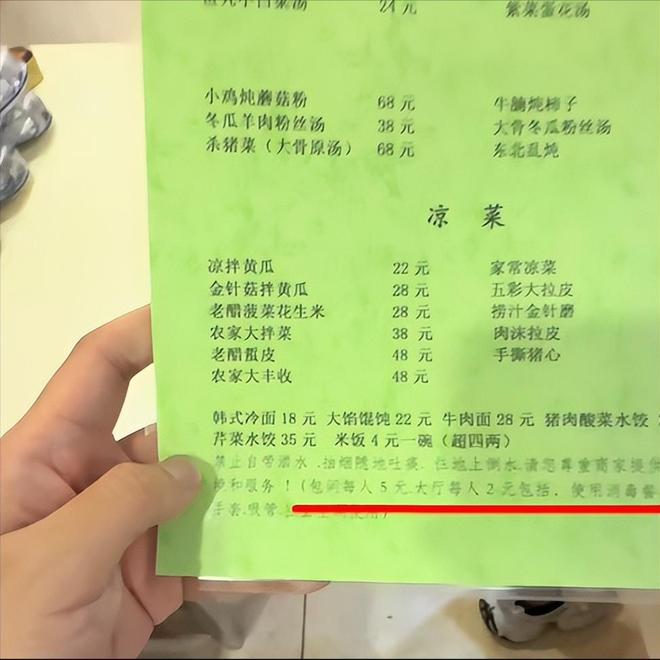 24元
紫菜蛋花汤
小鸡炖蘑菇粉 68元 牛腩炖柿子
冬瓜羊肉粉丝汤 38元 大骨冬瓜粉丝汤
杀猪菜（大骨原汤） 68元 东北乱炖
凉 菜
凉拌黄瓜 22元 家常凉菜
金针菇拌黄瓜 28元 五彩大拉皮
老醋菠菜花生米 28元 捞汁金针磨
农家大拌菜 38元 肉沫拉皮
老醋蛋皮 48元 手撕猪心
农家大丰收 48元
韩式冷面18元 大馅馄饨22元 牛肉面28元 猪肉酸菜水饺
芹菜水饺35元 米饭4元一碗（超四两）
禁止自带酒水.抽烟随地吐痰.往地上倒水.请您尊重商家提供
和服务！（包间每人5元.大厅每人2元包括.使用消毒餐
手套.吸管